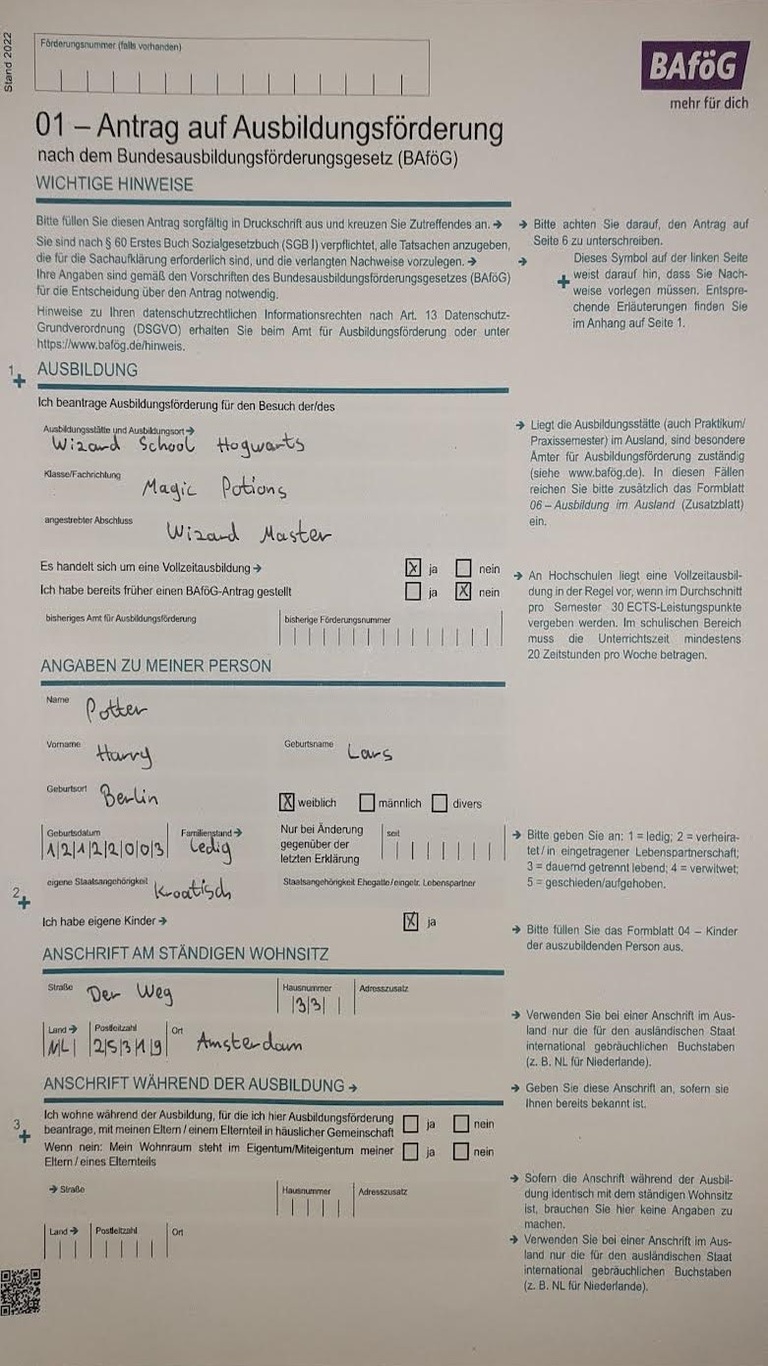 Stand 2022
Förderungsnummer (falls vorhanden)
BAföG
mehr für dich
01 – Antrag auf Ausbildungsförderung
nach dem Bundesausbildungsförderungsgesetz (BAföG)
WICHTIGE HINWEISE
Bitte füllen Sie diesen Antrag sorgfältig in Druckschrift aus und kreuzen Sie Zutreffendes an. →
Sie sind nach § 60 Erstes Buch Sozialgesetzbuch (SGB I) verpflichtet, alle Tatsachen anzugeben,
die für die Sachaufklärung erforderlich sind, und die verlangten Nachweise vorzulegen. →
Ihre Angaben sind gemäß den Vorschriften des Bundesausbildungsförderungsgesetzes (BAföG)
für die Entscheidung über den Antrag notwendig.
Hinweise zu Ihren datenschutzrechtlichen Informationsrechten nach Art. 13 Datenschutz-
Grundverordnung (DSGVO) erhalten Sie beim Amt für Ausbildungsförderung oder unter
https://www.bafög.de/hinweis.
→ Bitte achten Sie darauf, den Antrag auf
Seite 6 zu unterschreiben.
→ Dieses Symbol auf der linken Seite
+ weist darauf hin, dass Sie Nach-
weise vorlegen müssen. Entspre-
chende Erläuterungen finden Sie
im Anhang auf Seite 1.
1 + AUSBILDUNG
Ich beantrage Ausbildungsförderung für den Besuch der/des
Ausbildungsstätte und Ausbildungsort →
Wizard School Hogwarts
Klasse/Fachrichtung
Magic Potions
angestrebter Abschluss
Wizard Master
→ Liegt die Ausbildungsstätte (auch Praktikum/
Praxissemester) im Ausland, sind besondere
Ämter für Ausbildungsförderung zuständig
(siehe www.bafög.de). In diesen Fällen
reichen Sie bitte zusätzlich das Formblatt
06 – Ausbildung im Ausland (Zusatzblatt)
ein.
Es handelt sich um eine Vollzeitausbildung → X ja nein
Ich habe bereits früher einen BAföG-Antrag gestellt ja X nein
bisheriges Amt für Ausbildungsförderung bisherige Förderungsnummer
→ An Hochschulen liegt eine Vollzeitausbil-
dung in der Regel vor, wenn im Durchschnitt
pro Semester 30 ECTS-Leistungspunkte
vergeben werden. Im schulischen Bereich
muss die Unterrichtszeit mindestens
20 Zeitstunden pro Woche betragen.
ANGABEN ZU MEINER PERSON
Name
Potter
Vorname Geburtsname
Harry Lars
Geburtsort
Berlin X weiblich männlich divers
Geburtsdatum Familienstand → Nur bei Änderung seit
12122003 Ledig gegenüber der
letzten Erklärung
→ Bitte geben Sie an: 1 = ledig; 2 = verheira-
tet / in eingetragener Lebenspartnerschaft;
3 = dauernd getrennt lebend; 4 = verwitwet;
5 = geschieden/aufgehoben.
2 + eigene Staatsangehörigkeit Staatsangehörigkeit Ehegatte/eingetr. Lebenspartner
Kroatisch
Ich habe eigene Kinder → X ja
→ Bitte füllen Sie das Formblatt 04 – Kinder
der auszubildenden Person aus.
ANSCHRIFT AM STÄNDIGEN WOHNSITZ
Straße Hausnummer Adresszusatz
Der Weg 33
Land → Postleitzahl Ort
NL 25319 Amsterdam
→ Verwenden Sie bei einer Anschrift im Aus-
land nur die für den ausländischen Staat
international gebräuchlichen Buchstaben
(z. B. NL für Niederlande).
ANSCHRIFT WÄHREND DER AUSBILDUNG →
→ Geben Sie diese Anschrift an, sofern sie
Ihnen bereits bekannt ist.
3 + Ich wohne während der Ausbildung, für die ich hier Ausbildungsförderung
beantrage, mit meinen Eltern / einem Elternteil in häuslicher Gemeinschaft ja nein
Wenn nein: Mein Wohnraum steht im Eigentum/Miteigentum meiner
Eltern / eines Elternteils ja nein
→ Straße Hausnummer Adresszusatz
Land → Postleitzahl Ort
→ Sofern die Anschrift während der Ausbil-
dung identisch mit dem ständigen Wohnsitz
ist, brauchen Sie hier keine Angaben zu
machen.
→ Verwenden Sie bei einer Anschrift im Aus-
land nur die für den ausländischen Staat
international gebräuchlichen Buchstaben
(z. B. NL für Niederlande).